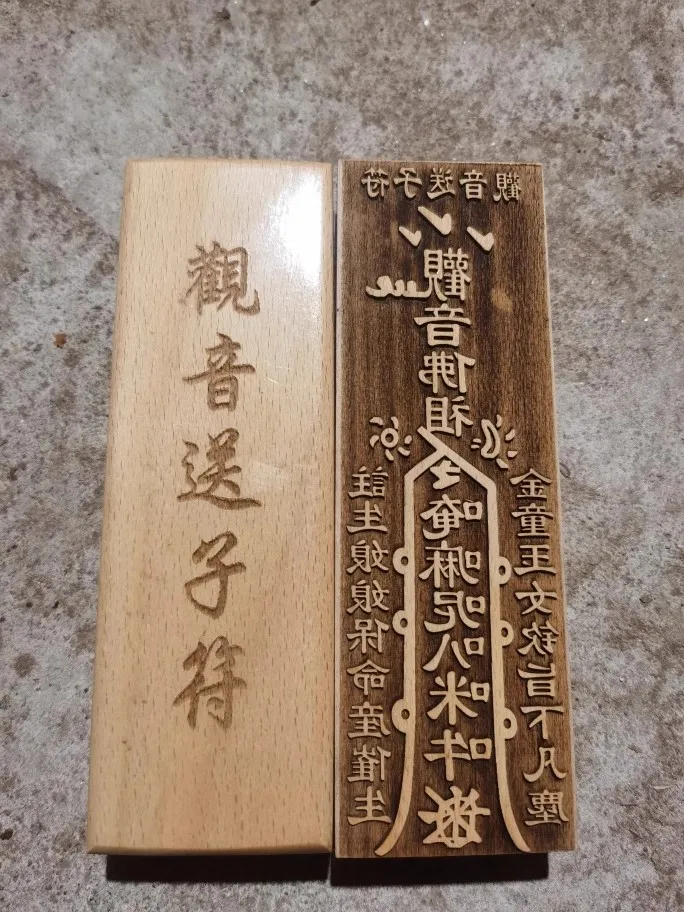 觀音送子符
觀音送子符
觀音佛祖
唵嘛呢叭咪吽
金童玉女欽旨下凡塵
註生娘娘保命產催生